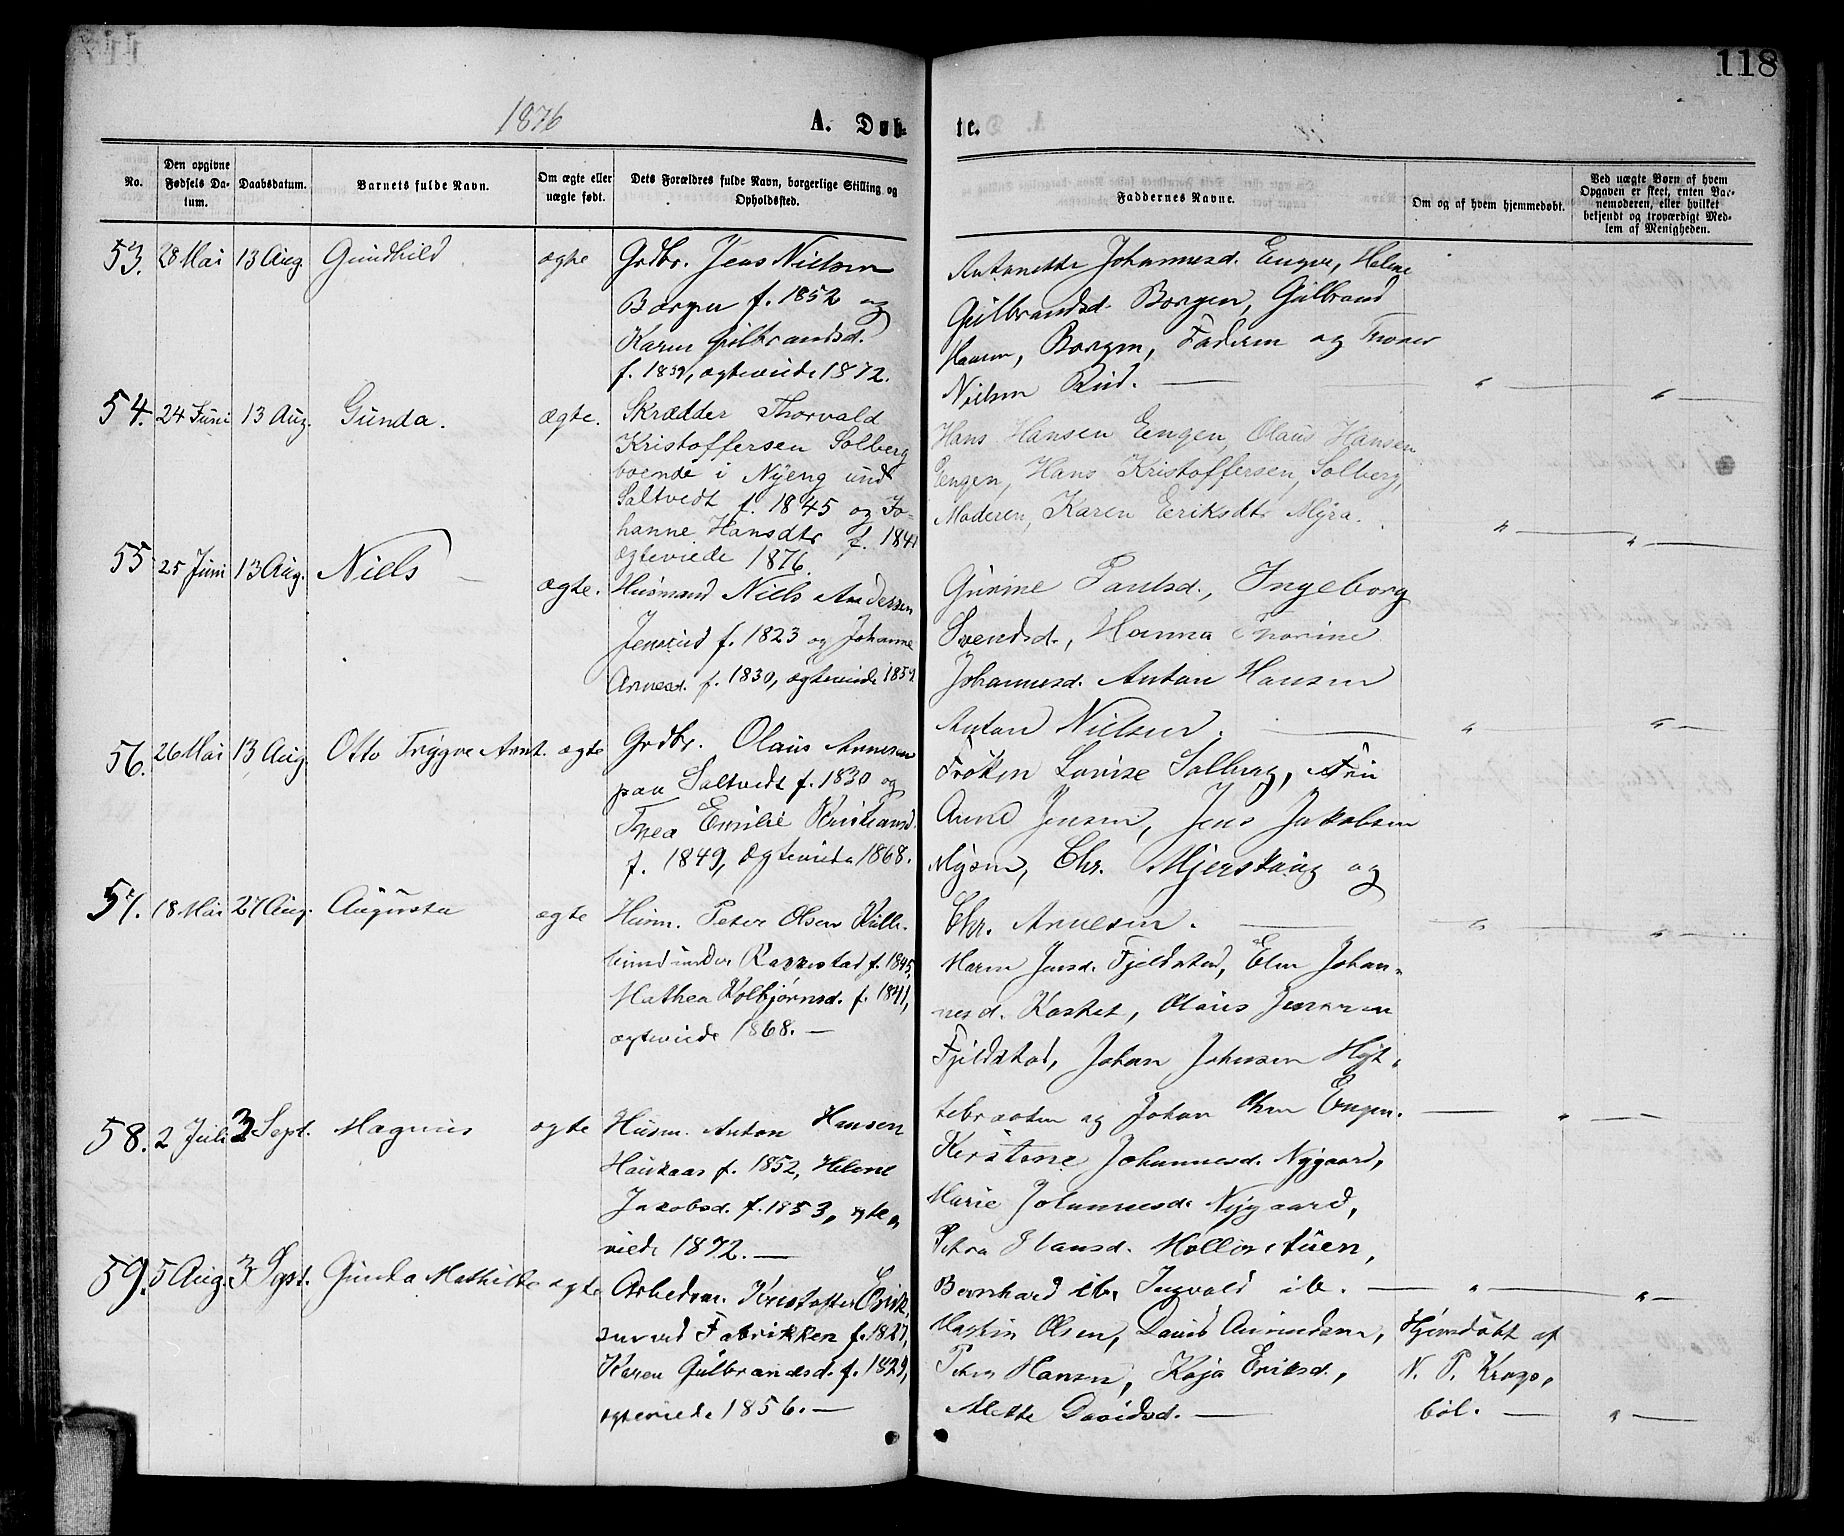 118
1876
A. Døb-
te.
No.
Den opgivne Fødsels Da-tum.
Daabsdatum.
Barnets fulde Navn.
Om ægte eller uægte født.
Dets Forældres fulde Navn, borgerlige Stilling og Opholdssted.
Faddernes Navne.
Om og af hvem hjemmedøbt.
Ved uægte Børn af hvem Opgaven er skeet, enten Bar-nemoderen, eller hvilket bekjendt og troværdigt Med-lem af Menigheden.
53. 28 Mai 13 Aug. Gundhild. ægte
Grdbr. Jens Nielsen
Borgen f. 1852 og
Karen Gulbrandsd.
f. 1839, ægteviede 1872.
Antonette Johannesd. Engen, Helene
Gulbrandsd. Borgen, Gulbrand
Hansen, Borgen, Faderen og Thorer
Nielsen Rud. — " — " —
54. 24 Juni 13 Aug. Gunda. ægte.
Skrædder Thorvald
Kristoffersen Solberg
boende i Nyeng und
Saltvedt f. 1845 og Jo-
hanne Hansdtr f. 1841
ægteviede 1876.
Hans Hansen Eengen, Olaus Hansen
Eengen, Hans Kristoffersen, Solberg,
Moderen, Karen Eeriksdtr Myra. " — " —
55 25 Juni 13 Aug. Niels — ægte.
Husmand Niels Andersen
Jensrud f. 1823 og Johanne
Arnesd. f. 1830, ægteviede 1854.
Gurine Paulsd., Ingeborg
Svendsd., Hanna Thorine
Johannesd. Anton Hansen
Anton Nielsen. — " — " —
56. 26 Mai 13 Aug. Otto Trygve Arnt. ægte
Grdbr. Olaus Arnesen
paa Saltvedt f. 1830 og
Thea Emilie Kristiansd.
f. 1849, Ægteviede 1868.
Frøken Lovise Solberg, Fru
Arnd Jensen, Jens Jakobsen
Mysen, Chr. Mjerskoug og
Chr. Arnesen. — " — " —
57. 18 Mai 27 Aug. Augusta ægte
Husm. Peter Olsen Kulle-
bund under Rakkestad f. 1845,
Mathea Kolbjørnsd. f. 1841,
ægteviede 1868. —
Maren Jensd. Fjeldstad, Elen Johan-
nesd. Kasket, Olaus Jensen
Fjeldstad, Johan Johnsen Hyt-
tebraaten og Johan Olsen Engen. — " —
58. 2 Juli 3 Sept. Magnus ægte
Husm. Anton Hansen
Haukaas f. 1852, Helene
Jakobsd. f. 1853, ægte-
viede 1872. —
Kirstine Johannesd. Nygaard,
Marie Johannesd. Nygaard,
Petra Hansd. Mollerstuen,
Bernhard ib. Ingvald ib. — " — " —
59. 5 Aug. 3 Sept. Gunda Mathilde ægte
Arbedsm. Kristoffer Erik-
sen ved Fabrikken f. 1827,
Karen Gulbrandsd. f. 1829,
ægteviede 1856. —
Martin Olsen, David Amundsen,
Peter Hansen, Kaja Eriksd.,
Mette Davidsd. —
Hjemdøbt af
N. P. Krogs-
bøl. — " —